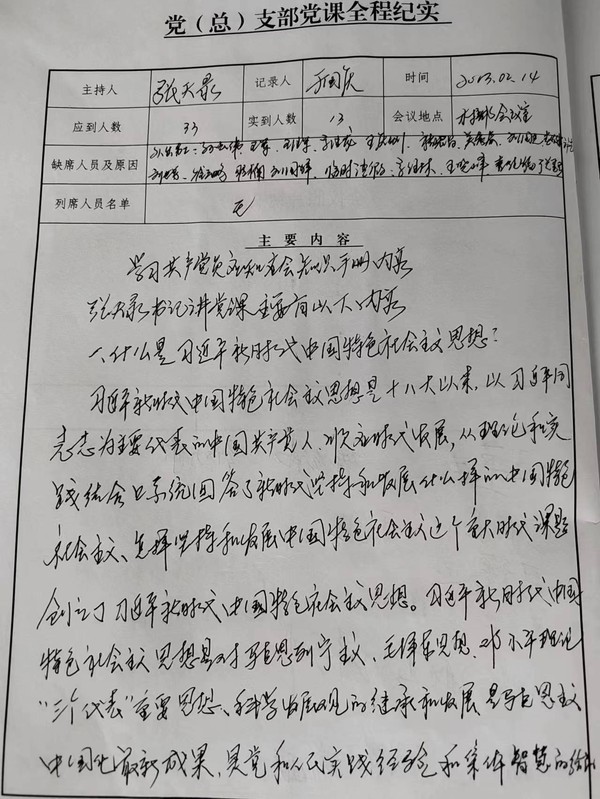 党（总）支部党课全程纪实
主持人 张天录 记录人 时间 2023.02.14
应到人数 33 实到人数 13 会议地点 会议室
缺席人员及原因
列席人员名单 无
主要内容
学习共产党员应知应会知识手册内容
张天录书记讲党课主要有以下内容
一、什么是习近平新时代中国特色社会主义思想？
习近平新时代中国特色社会主义思想是十八大以来，以习近平同
志为主要代表的中国共产党人，顺应时代发展，从理论和实
践结合上系统回答了新时代坚持和发展什么样的中国特色
社会主义、怎样坚持和发展中国特色社会主义这个重大时代课题
创立了习近平新时代中国特色社会主义思想。习近平新时代中国
特色社会主义思想是对马思列宁主义、毛泽东思想、邓小平理论
“三个代表”重要思想、科学发展观的继承和发展是马思主义
中国化最新成果，是党和人民实践经验和集体智慧的结晶